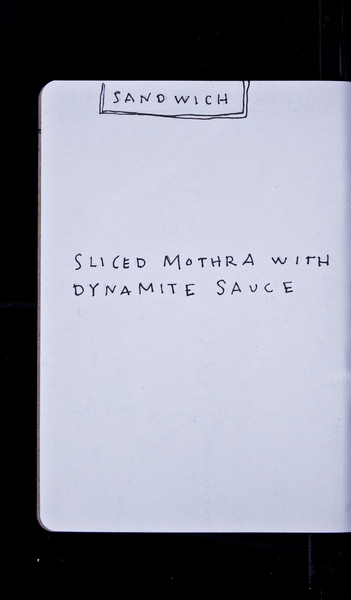 SANDWICH
SLICED MOTHRA WITH
DYNAMITE SAUCE